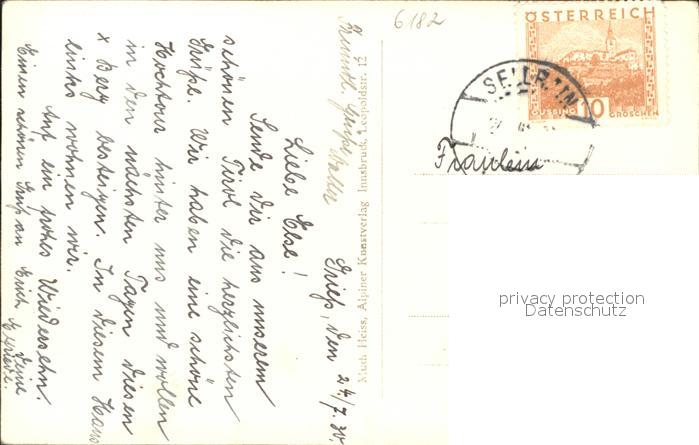 6182
ÖSTERREICH
GÜSSING 10 GROSCHEN
SELLRAIN
Fräulein
privacy protection
Datenschutz
Much Heiss, Alpiner Kunstverlag Innsbruck, Leopoldstr. 12
Grieß, den 24/7.30.
Liebe Else!
Sende dir aus unserem
schönen Tirol die herzlichsten
Grüße. Wir haben eine schöne
Hochtour hinter uns und wollen
in den nächsten Tagen diesen
x Berg besteigen. In diesem Haus
links wohnen wir.
Auf ein frohes Wiedersehn.
Deine
Einen schönen Gruß an Euch